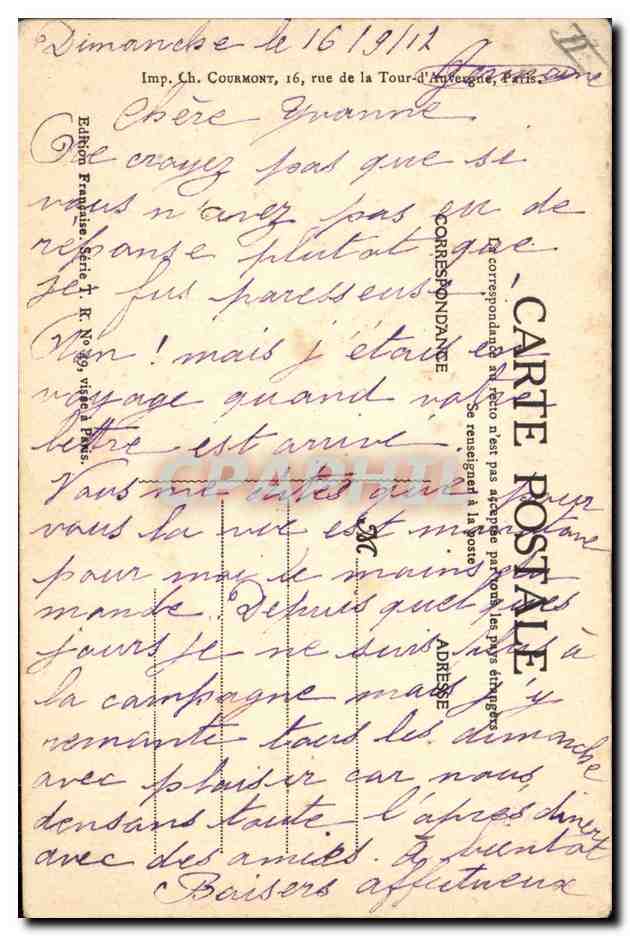 Dimanche le 16/9/12
Imp. Ch. COURMONT, 16, rue de la Tour-d'Auvergne, Paris.
Chère Yvonne
Ne croyez pas que si
vous n'avez pas eu de
reponse plutot que
je fus paresseuse.
Non ! mais j'étais en
voyage quand votre
lettre est arrivé.
Vous me dites que pour
vous la vie est monotone
pour moi le moins du
monde. Depuis quelques
jours je ne suis plus à
la campagne mais j'y
remonte tous les dimanche
avec plaisir car nous
densons toute l'apres diner
avec des amies. a bientot
Baisers affectueux
Edition Française. Série T. R. N° 49, visée à Paris.
CARTE POSTALE
La correspondance au recto n'est pas acceptée par tous les pays étrangers
Se renseigner à la poste
CORRESPONDANCE
ADRESSE
M
CPAPHIL